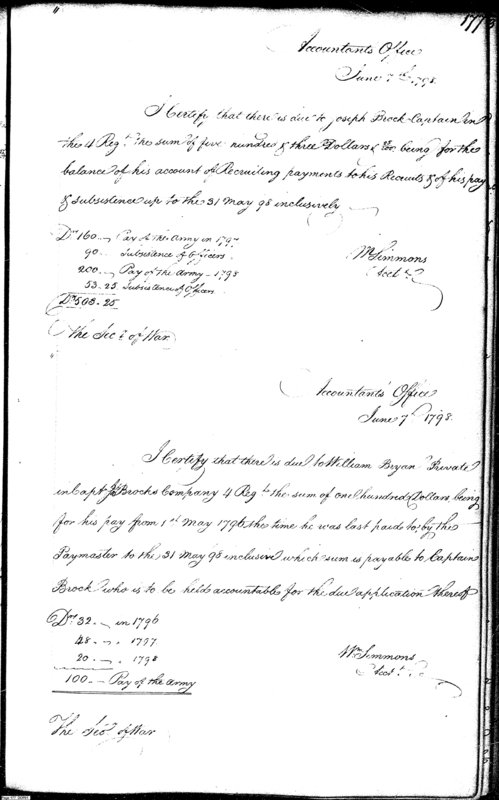 177
Accountants Office
June 7th 1798.
I Certify that there is due to Joseph Brock Captain in
the 4 Regt. the sum of five hundred & three Dollars, 25/100 being for the
balance of his account of Recruiting payments to his Recruits & of his pay
& Subsistence up to the 31 May 98 inclusively
Drs 160 — Pay of the Army in 1797
90 — Subsistence of Officers
200 — Pay of the Army — 1798
53.25 Subsistence of Officers
Drs 503.25
Wm Simmons
Acct.
The Secy. of War
Accountants Office
June 7th 1798.
I Certify that there is due to William Bryan Private
in Capt Js Brocks Company 4 Regt. the sum of one hundred Dollars, being
for his pay from 1st May 1796 the time he was last paid to, by the
Paymaster to the 31 May 98 inclusive which sum is payable to Captain
Brock who is to be held accountable for the due application thereof
Drs 32 — in 1796
48 — 1797
20 — 1798
100 — Pay of the Army
Wm Simmons
Acct.
The Secy. of War